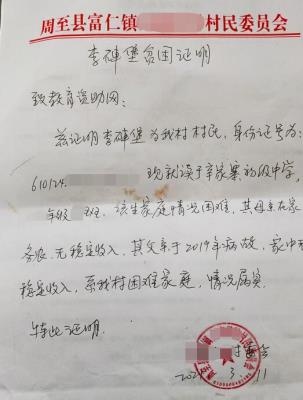 周至县富仁镇 村民委员会
李碑堡贫困证明
致教育资助网:
兹证明李碑堡为我村村民,身份证号为:
610124 现就读于辛家寨初级中学,
年级 班,该生家庭情况困难,其母亲在家
务农,无稳定收入,其父亲于2019年病故,家中无
稳定收入,系我村困难家庭,情况属实
特此证明.
村委会
3.11